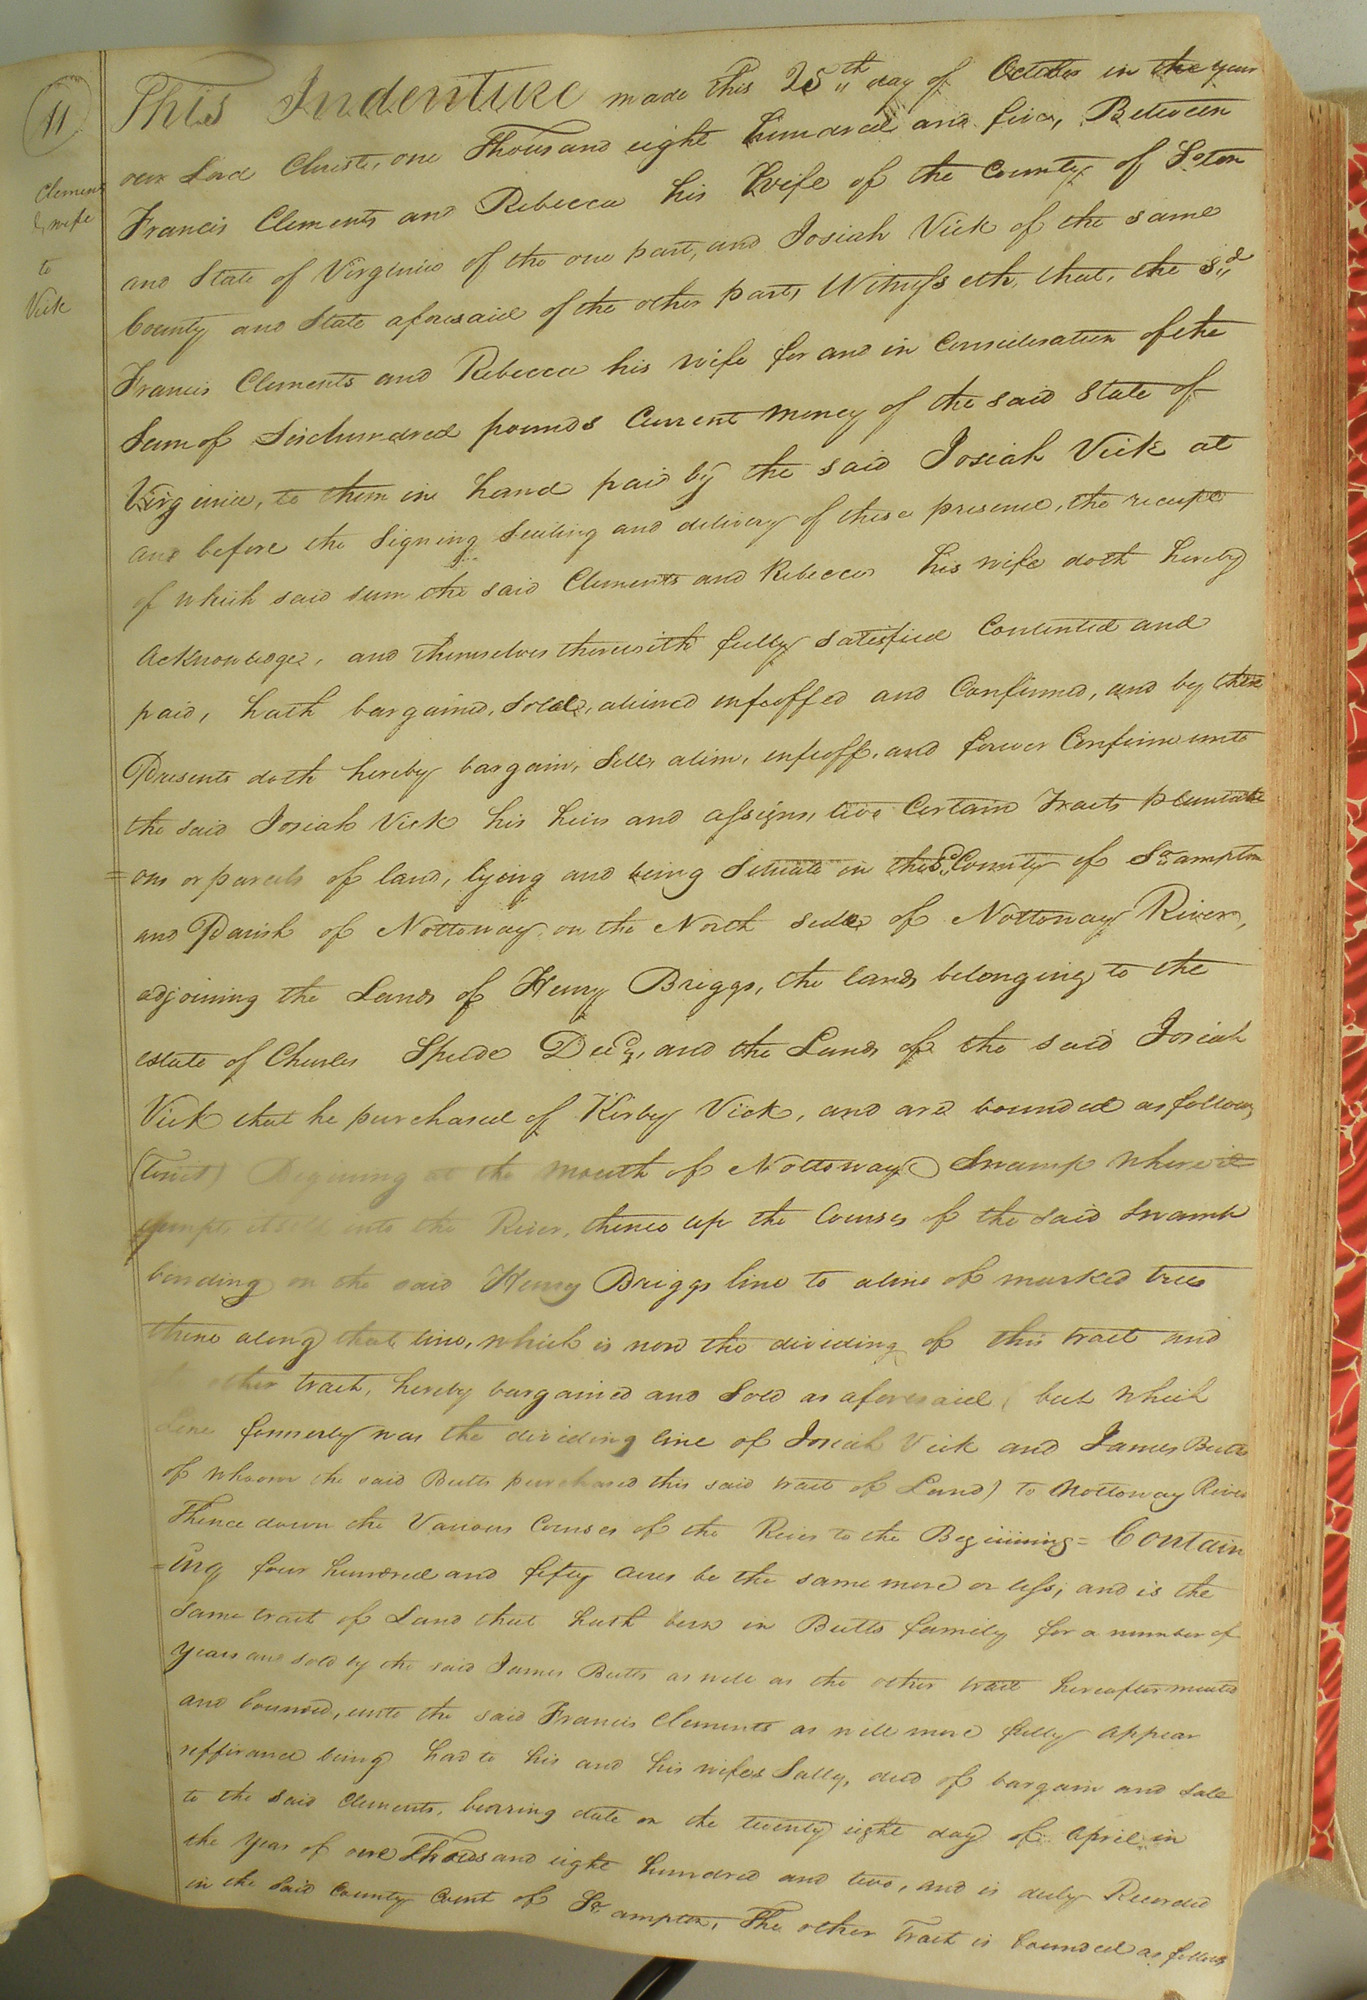 11
Clements
& wife
to
Vick
This Indenture made this 25th day of October in the year
our Lord Christ, one Thousand eight hundred and five, Between
Francis Clements and Rebecca his Wife of the County of So.ton
and State of Virginia of the one part, and Josiah Vick of the same
County and State aforesaid of the other part, Witnesseth, that, the Sd.
Francis Clements and Rebecca his wife for and in Consideration of the
Sum of Sixhundred pounds Current money of the said State of
Virginia, to them in hand paid by the said Josiah Vick at
and before the Signing Sealing and delivery of these presence, the receipt
of which said sum the said Clements and Rebecca his wife doth hereby
Acknowledge, and themselves therewith fully satisfied Contented and
paid, hath bargained, Sold, aliened infeoffed and Confirmed, and by these
Presents doth hereby bargain, Sell, alien, infeoff, and forever Confirm unto
the said Josiah Vick his heirs and assigns, two Certain Tracts plantati
=ons or parcels of land, lying and being Situate in the Sd. County of So.ampton
and Parish of Nottoway on the North side of Nottoway River,
adjoining the Lands of Henry Briggs, the lands belonging to the
estate of Charles Speede Decd., and the Lands of the said Josiah
Vick that he purchased of Kirby Vick, and are bounded as follows,
(Towit) Begining at the mouth of Nottoway Swamp where it
itself into the River, thence up the Courses of the said Swamp
bending on the said Henry Briggs line to aline of marked trees
thence along that line, which is now the dividing of this tract and
other tract, hereby bargained and Sold as aforesaid (but which
Line formerly was the dividing line of Josiah Vick and James Butts
of whom the said Butts purchased this said tract of Land) to Nottoway River
Thence down the Various Courses of the River to the Begiining = Contain
=ing four hundred and fifty acres be the same more or less; and is the
Same tract of Land that hath been in Butts family for a number of
years and sold by the said James Butts as well as the other tract hereafter mentd
and bounded, unto the said Francis Clements as will more fully appear
refferance being had to his and his wifes Sally, deed of bargain and Sale
to the said Clements, bearing date on the twenty eight day of April in
the Year of one Thousand eight hundred and two, and is duly Recorded
in the said County Court of So.ampton, The other Tract is bounded as follows